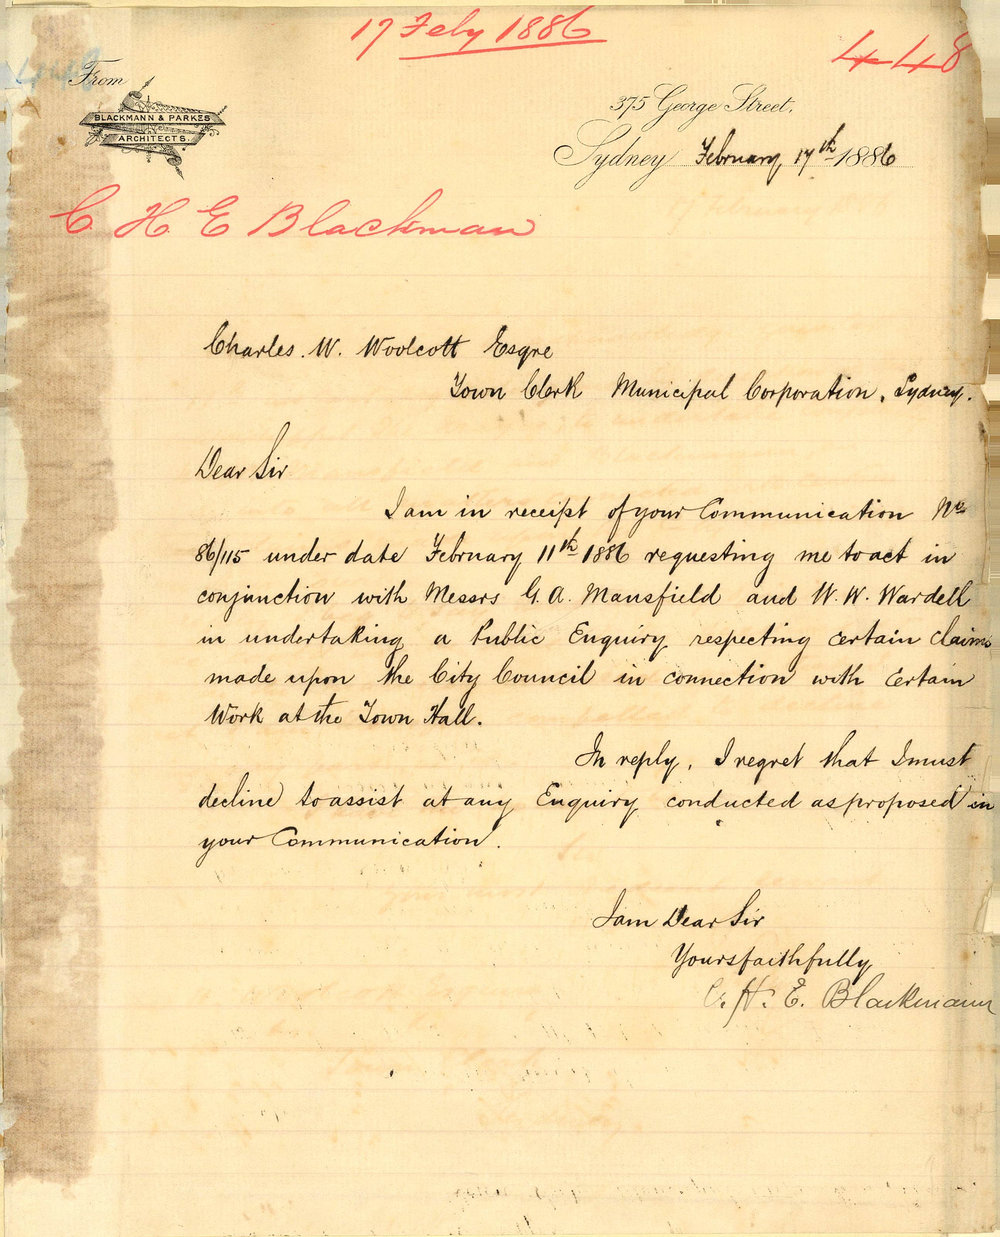 17 Feby 1886
448
From
BLACKMANN & PARKES
ARCHITECTS
375 George Street,
Sydney February 17th 1886
C H E Blackman
Charles. W. Woolcott Esqre
Town Clerk Municipal Corporation, Sydney.
Dear Sir
I am in receipt of your Communication No
86/115 under date February 11th 1886 requesting me to act in
conjunction with Messrs G. A. Mansfield and W. W. Wardell
in undertaking a Public Enquiry respecting certain claims
made upon the City Council in connection with certain
Work at the Town Hall.
In reply, I regret that I must
decline to assist at any Enquiry conducted as proposed in
your Communication.
I am Dear Sir
Yours faithfully
C. H. E. Blackmann